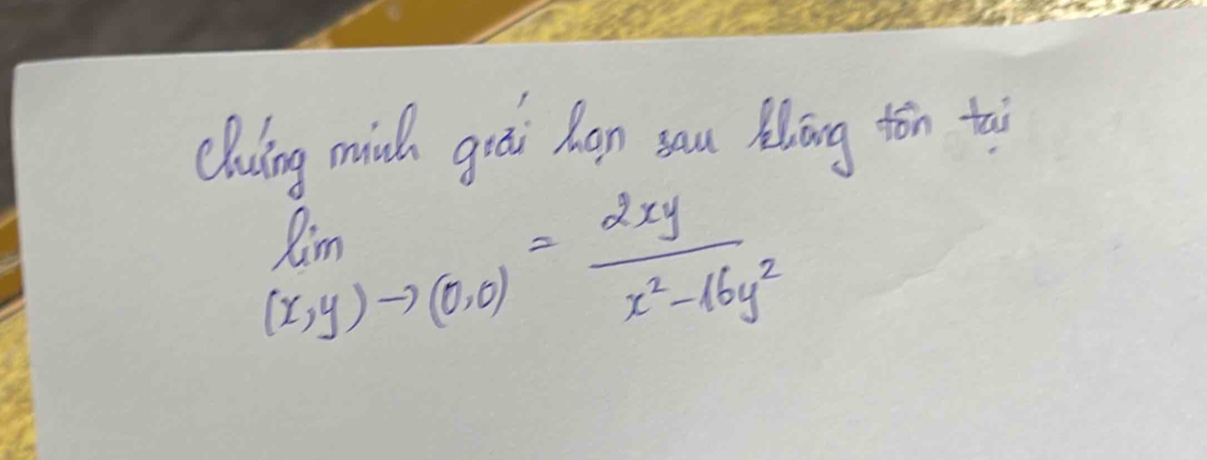 Chứng minh giới hạn sau không tồn tại
lim = 2xy
(x,y)→(0,0) x²-16y²